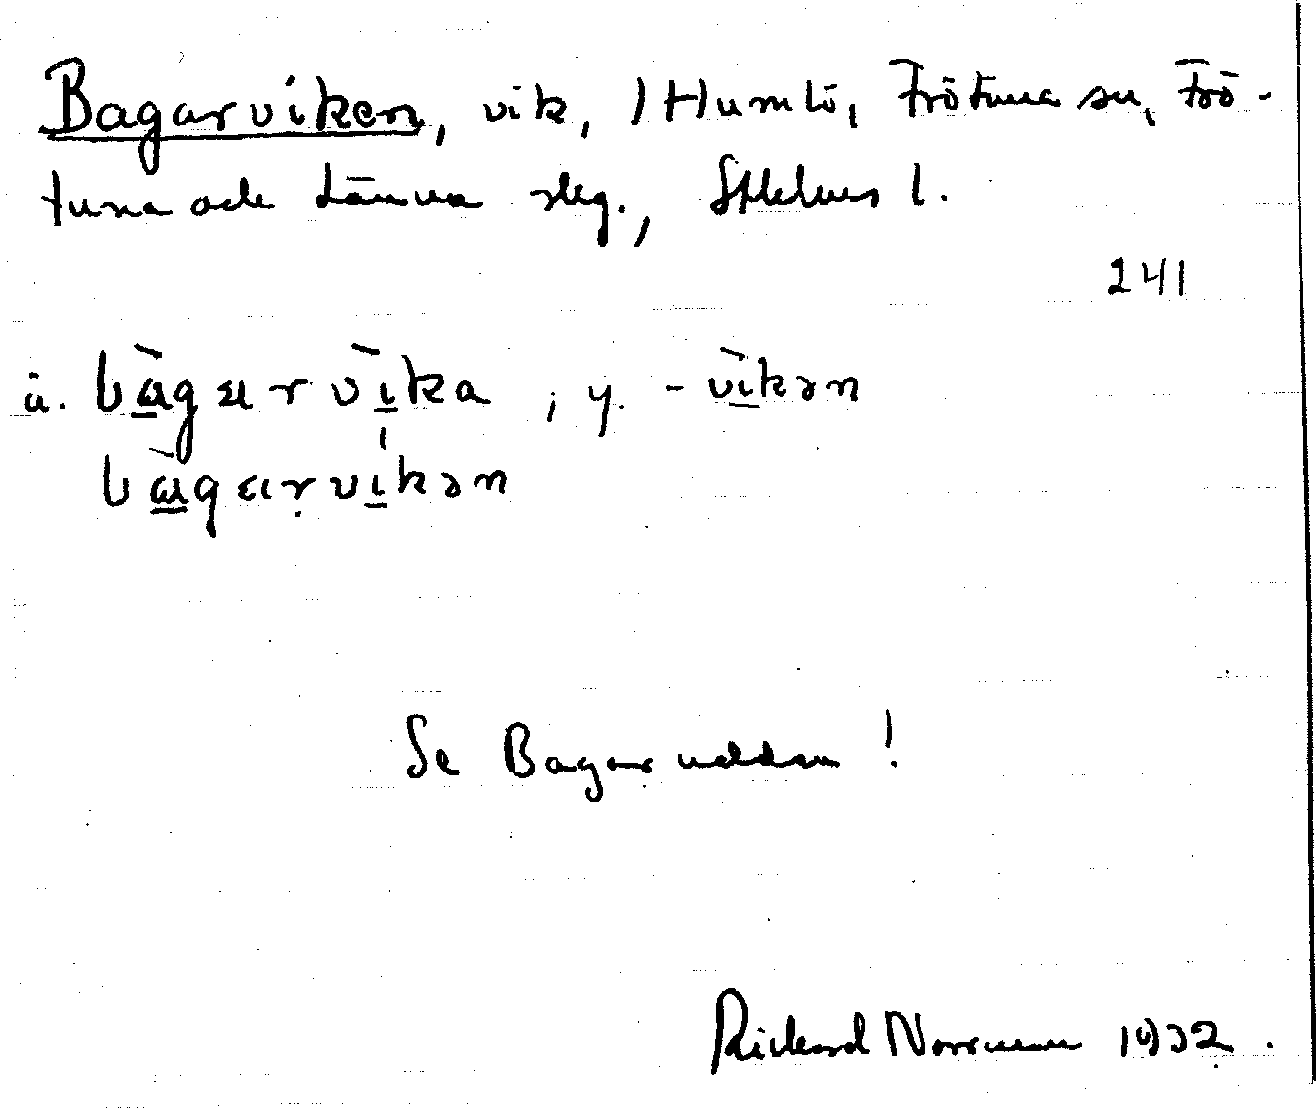 Bagarviken, vik, / Humlö, Frötuna sn, Frö-
tuna och Länna slg., Sthlms l.
241
ä. bàgarvìka, y. -vìkən
bàgarvikən
Se Bagarudden!
Rickard Norrman 1932.